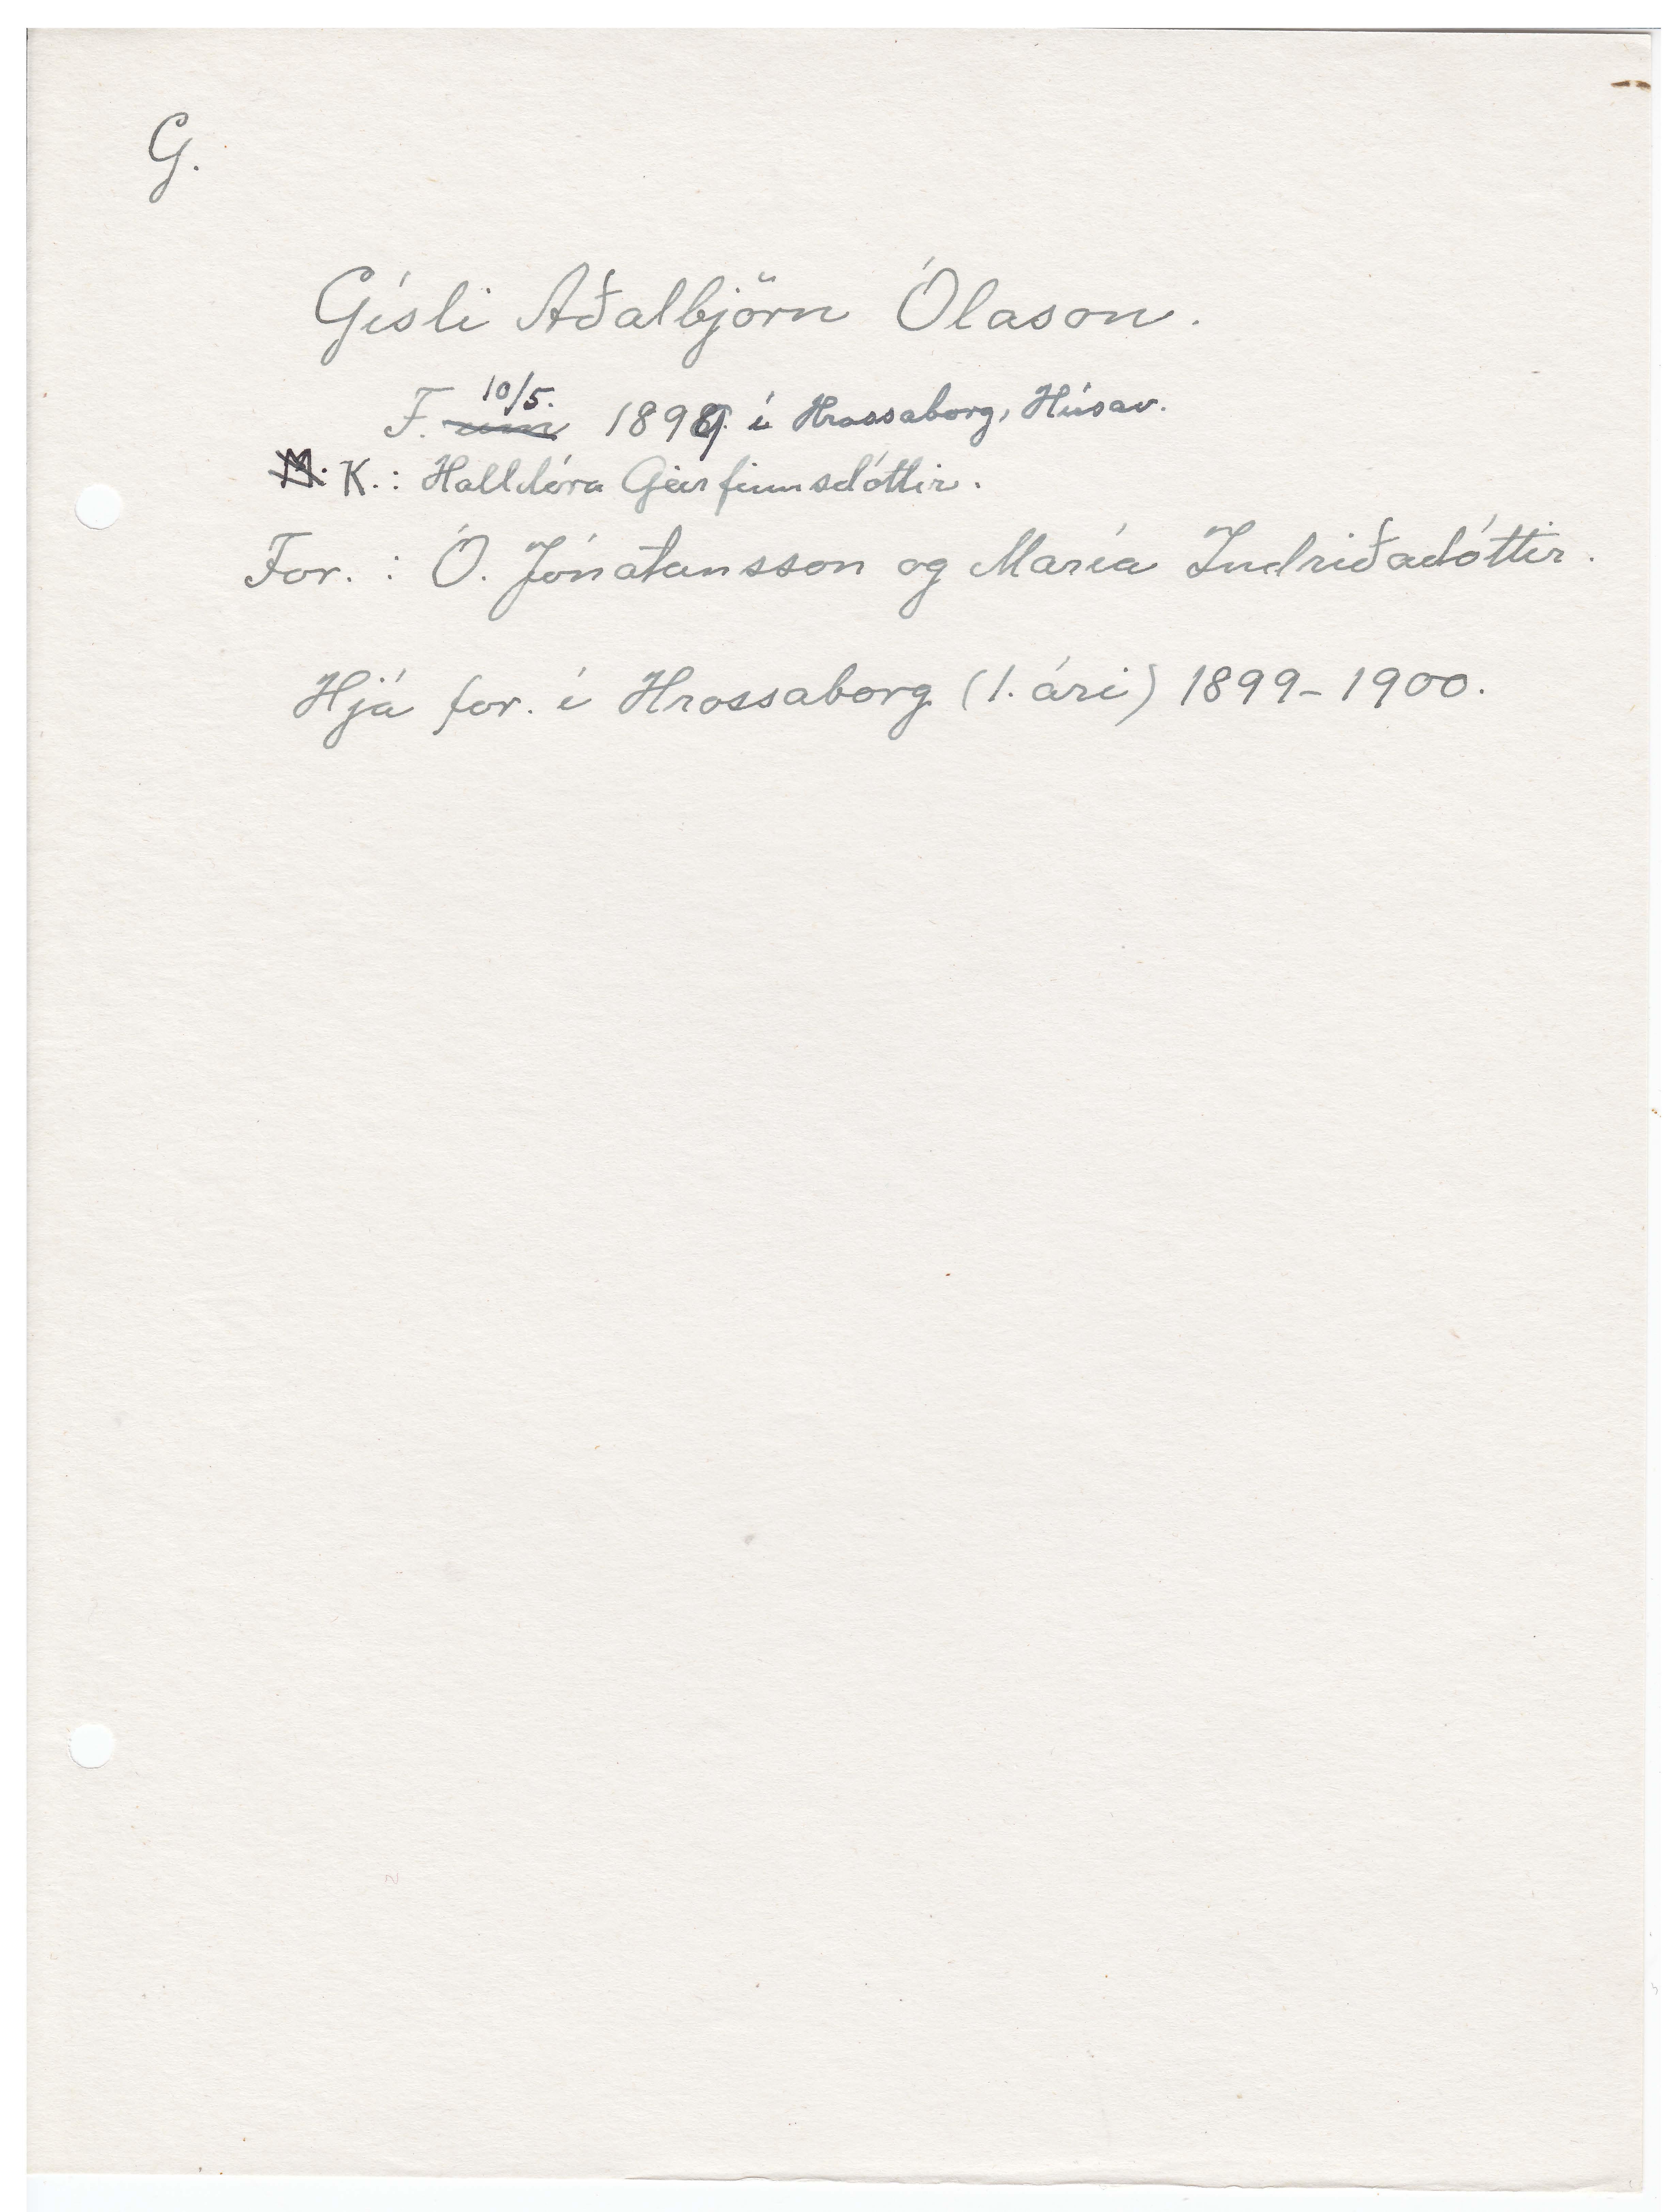 G.
Gísli Aðalbjörn Ólason.
F. 10/5. 1899. í Hrossaborg, Húsav.
K.: Halldóra Geirfinnsdóttir.
For. : Ó. Jónatansson og María Indriðadóttir.
Hjá for. í Hrossaborg (1. ári) 1899-1900.